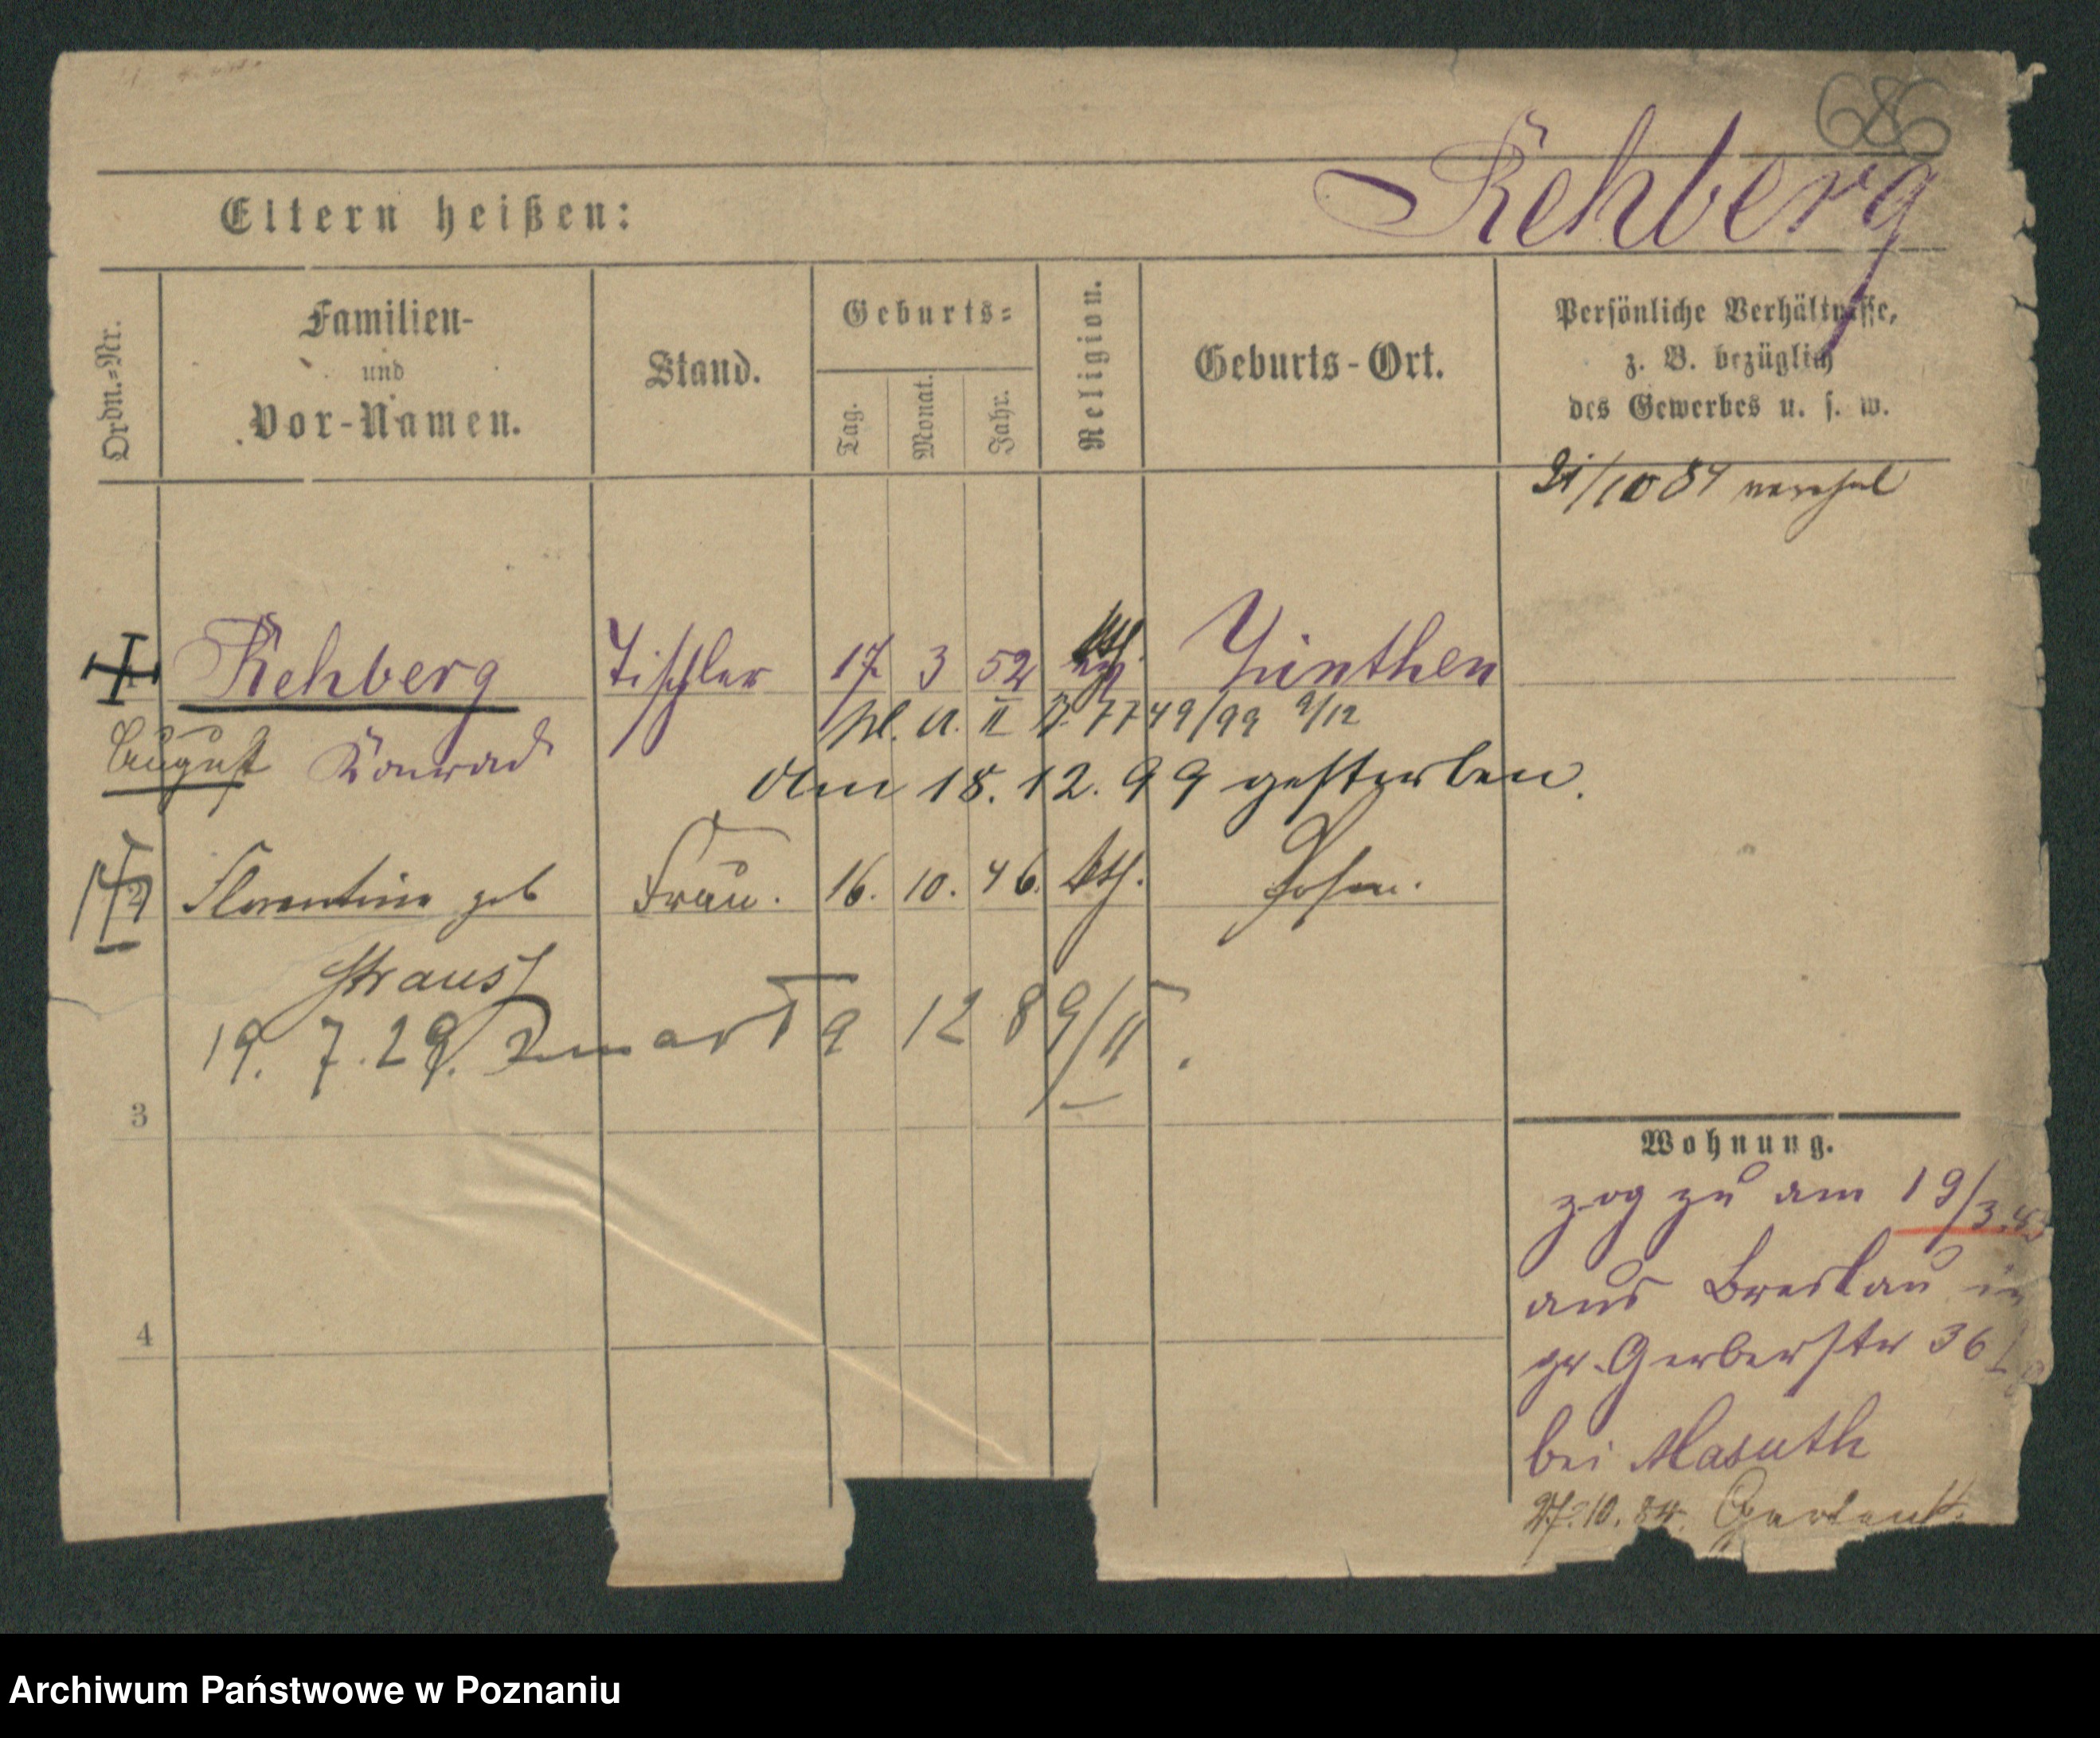 686
Rehberg
Eltern heißen:
Ordn.-Nr.
Familien-
und
Vor-Namen.
Stand.
Geburts-
Tag.
Monat.
Jahr.
Religion.
Geburts-Ort.
Persönliche Verhältnisse,
z. B. bezüglich
des Gewerbes u. s. w.
Rehberg Tischler 17 3 52 kth. Zinthen
August Konrad
7749/99 9/12
Am 18. 12. 99 gestorben.
2 Florentine geb Frau. 16. 10. 46. kth. Posen.
Straust
19. 7. 29. 9 12 89/II.
3
4
Wohnung.
zog zu am 19/3
aus Breslau in
gr. Gerberstr 36
bei Masuth
27.10.84.
Archiwum Państwowe w Poznaniu